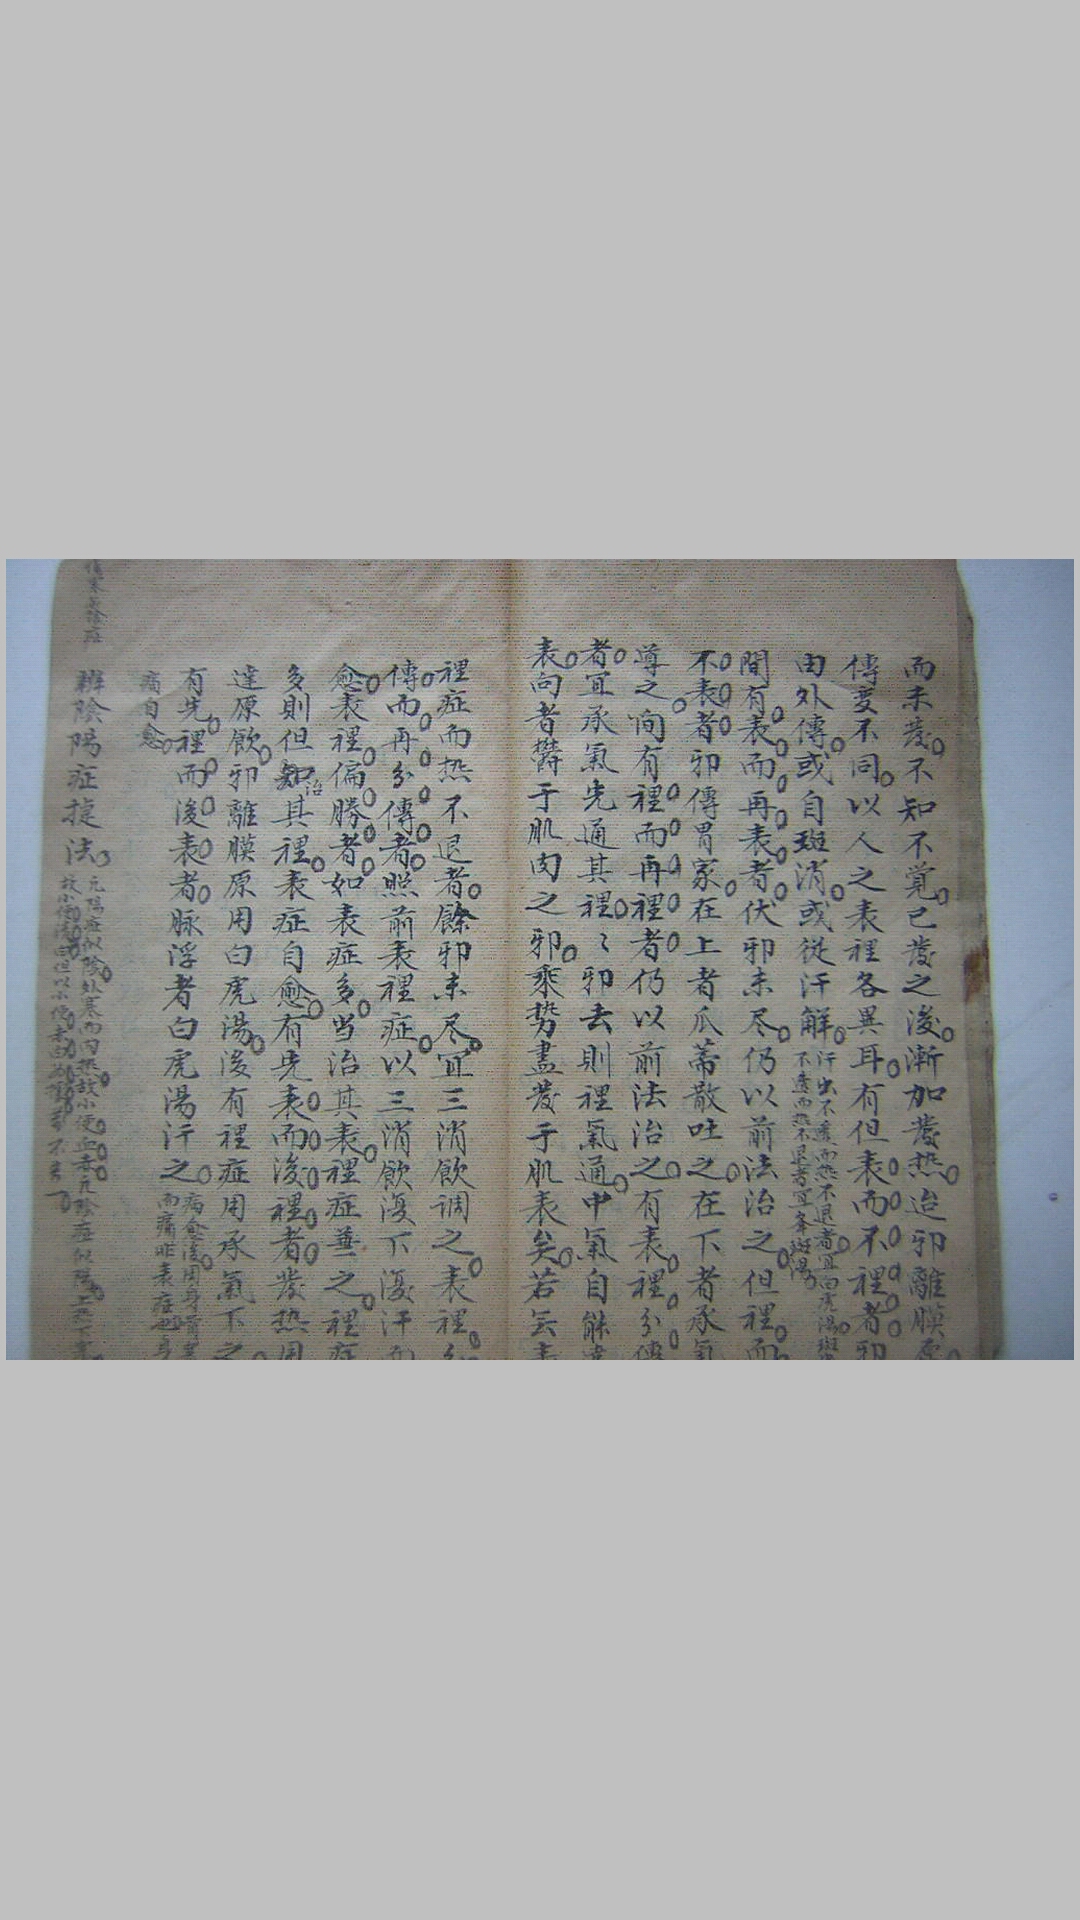 而未發不知不覺已發之後漸加發热迨邪離膜原
傳变不同以人之表裡各異耳有但表而不裡者邪
由外傳或自斑消或從汗解
汗出不透而热不退者宜白虎湯斑出
不透而热不退者宜举斑湯
間有表而再表者伏邪未尽仍以前法治之但裡而
不表者邪傳胃家在上者瓜蒂散吐之在下者承氣
導之间有裡而再裡者仍以前法治之有表裡分傳
者宜承氣先通其裡〻邪去則裡氣通中氣自能達
表向者鬱于肌肉之邪乘势盡發于肌表矣若云表
裡症而热不退者餘邪未尽宜三消飲调之表裡分
傳而再分傳者照前表裡症以三消飲復下復汗而
愈表裡偏勝者如表症多当治其表裡症兼之裡症
多則但治其裡表症自愈有先表而後裡者發热用
達原飲邪離膜原用白虎湯後有裡症用承氣下之
有先裡而後表者脉浮者白虎湯汗之
病愈後用身
而痛非表症也
痛自愈
辨陰陽症捷法
凡陽症似陰外寒而内热故小便血赤凡陰症似陽上热下寒
故小便清白但以小便赤白